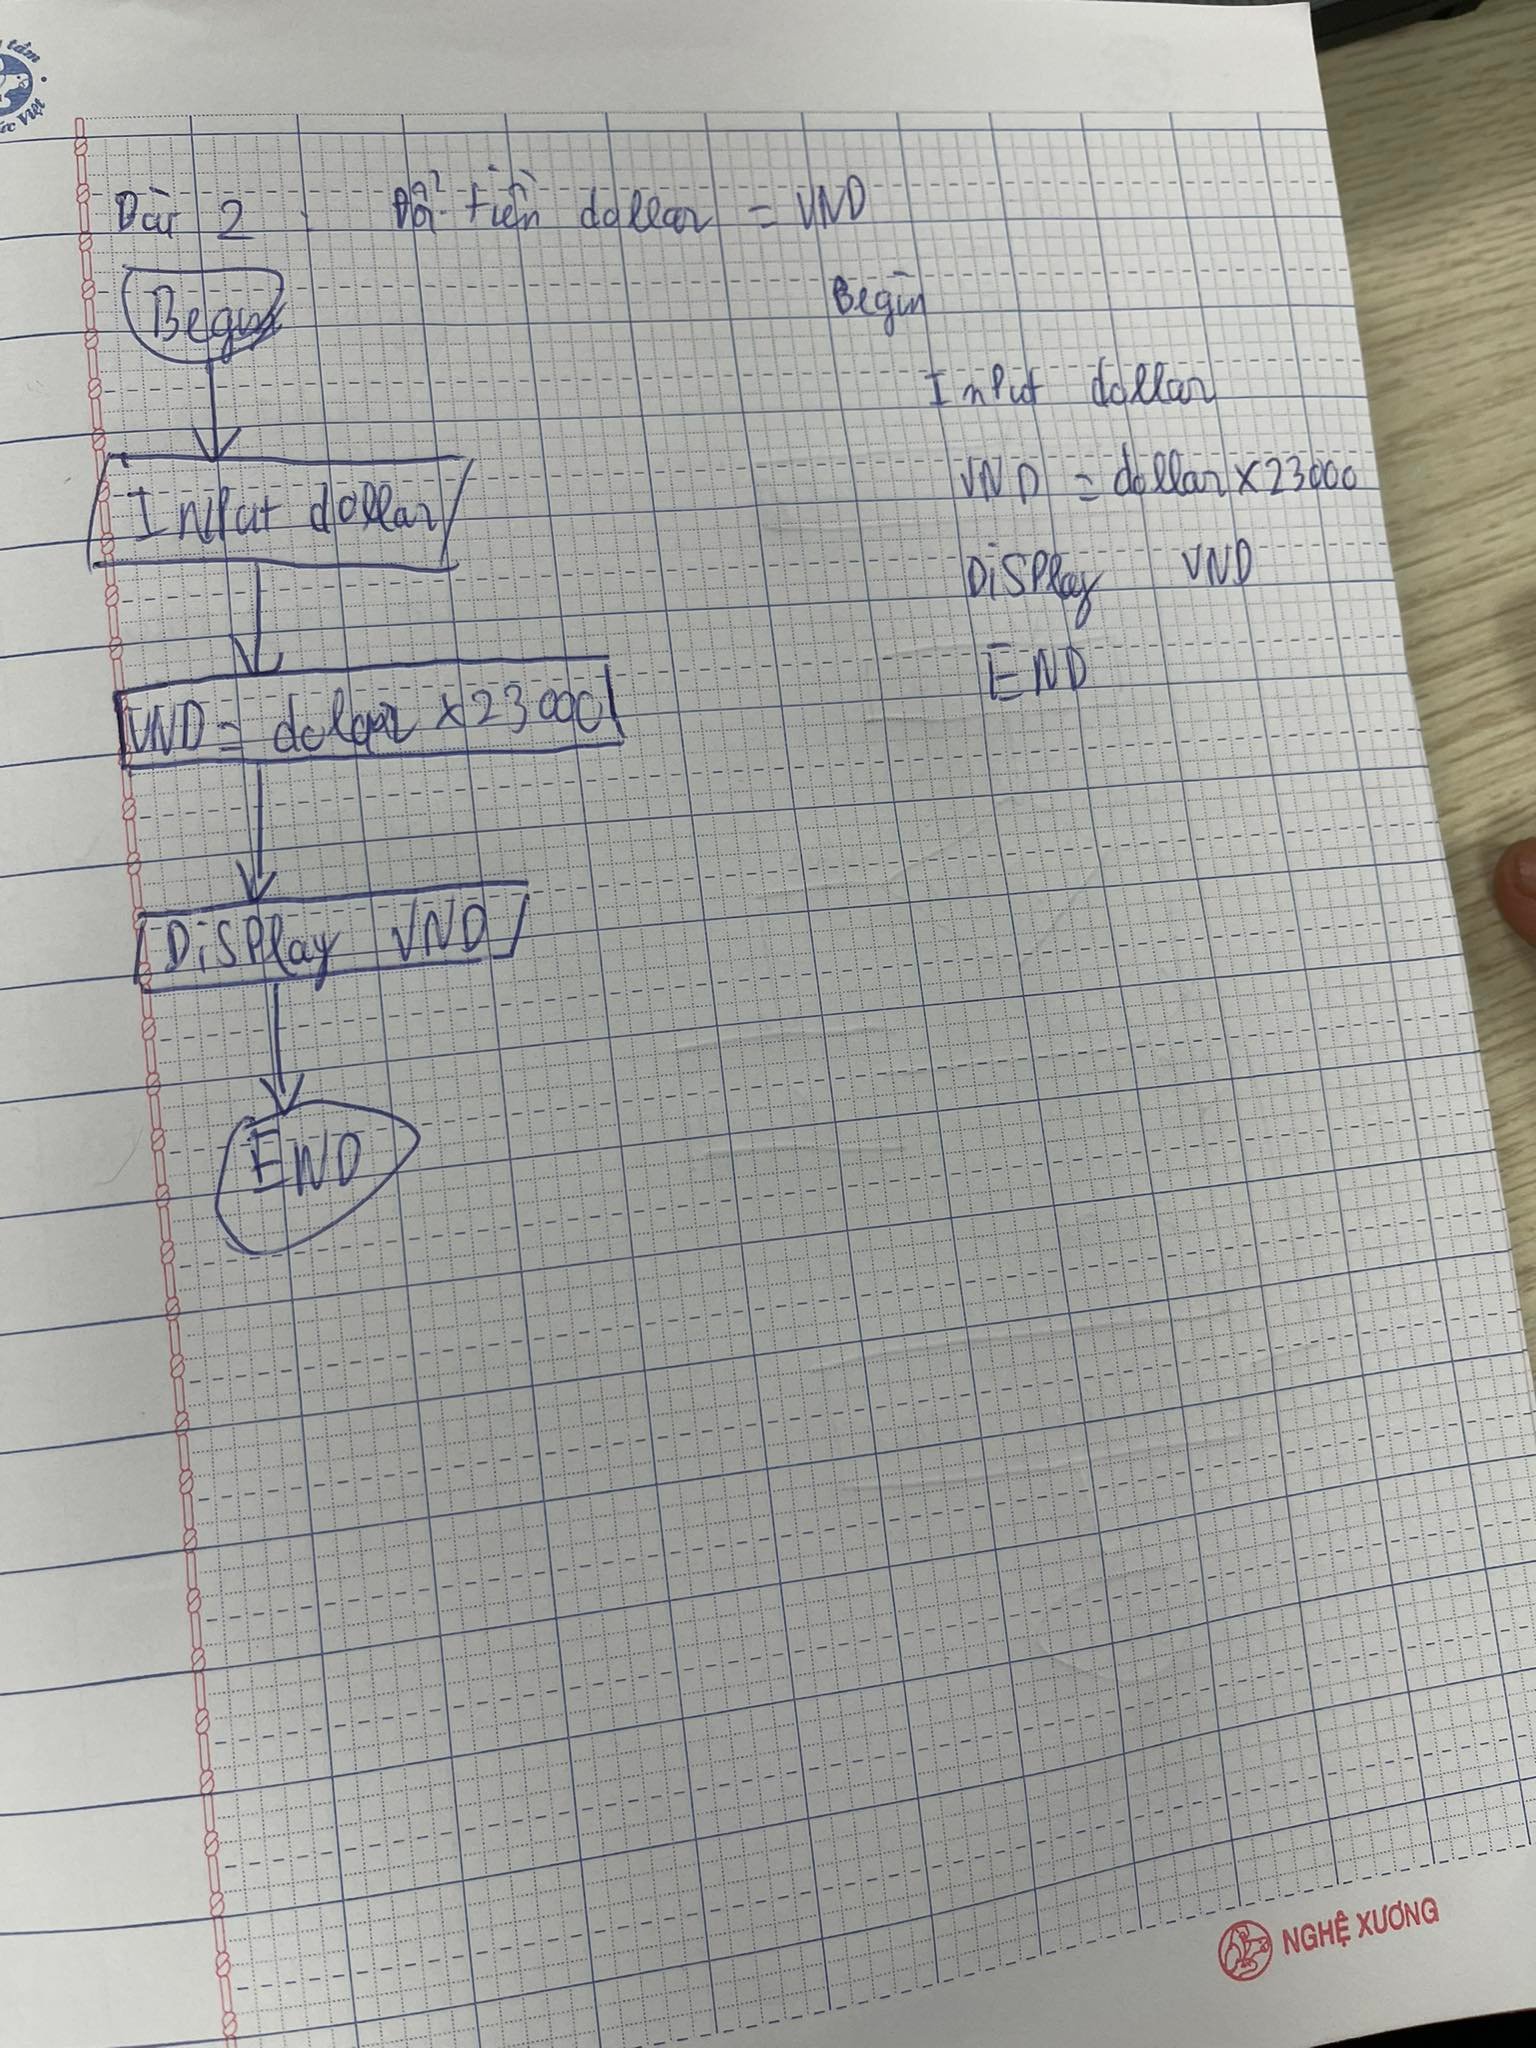 Bài 2 : Đổi tiền dollar = VND
Begin
Input dollar
VND = dollar x 23000
Display VND
END
Begin
Input dollar
VND = dollar x 23000
Display VND
END
NGHỆ XƯƠNG